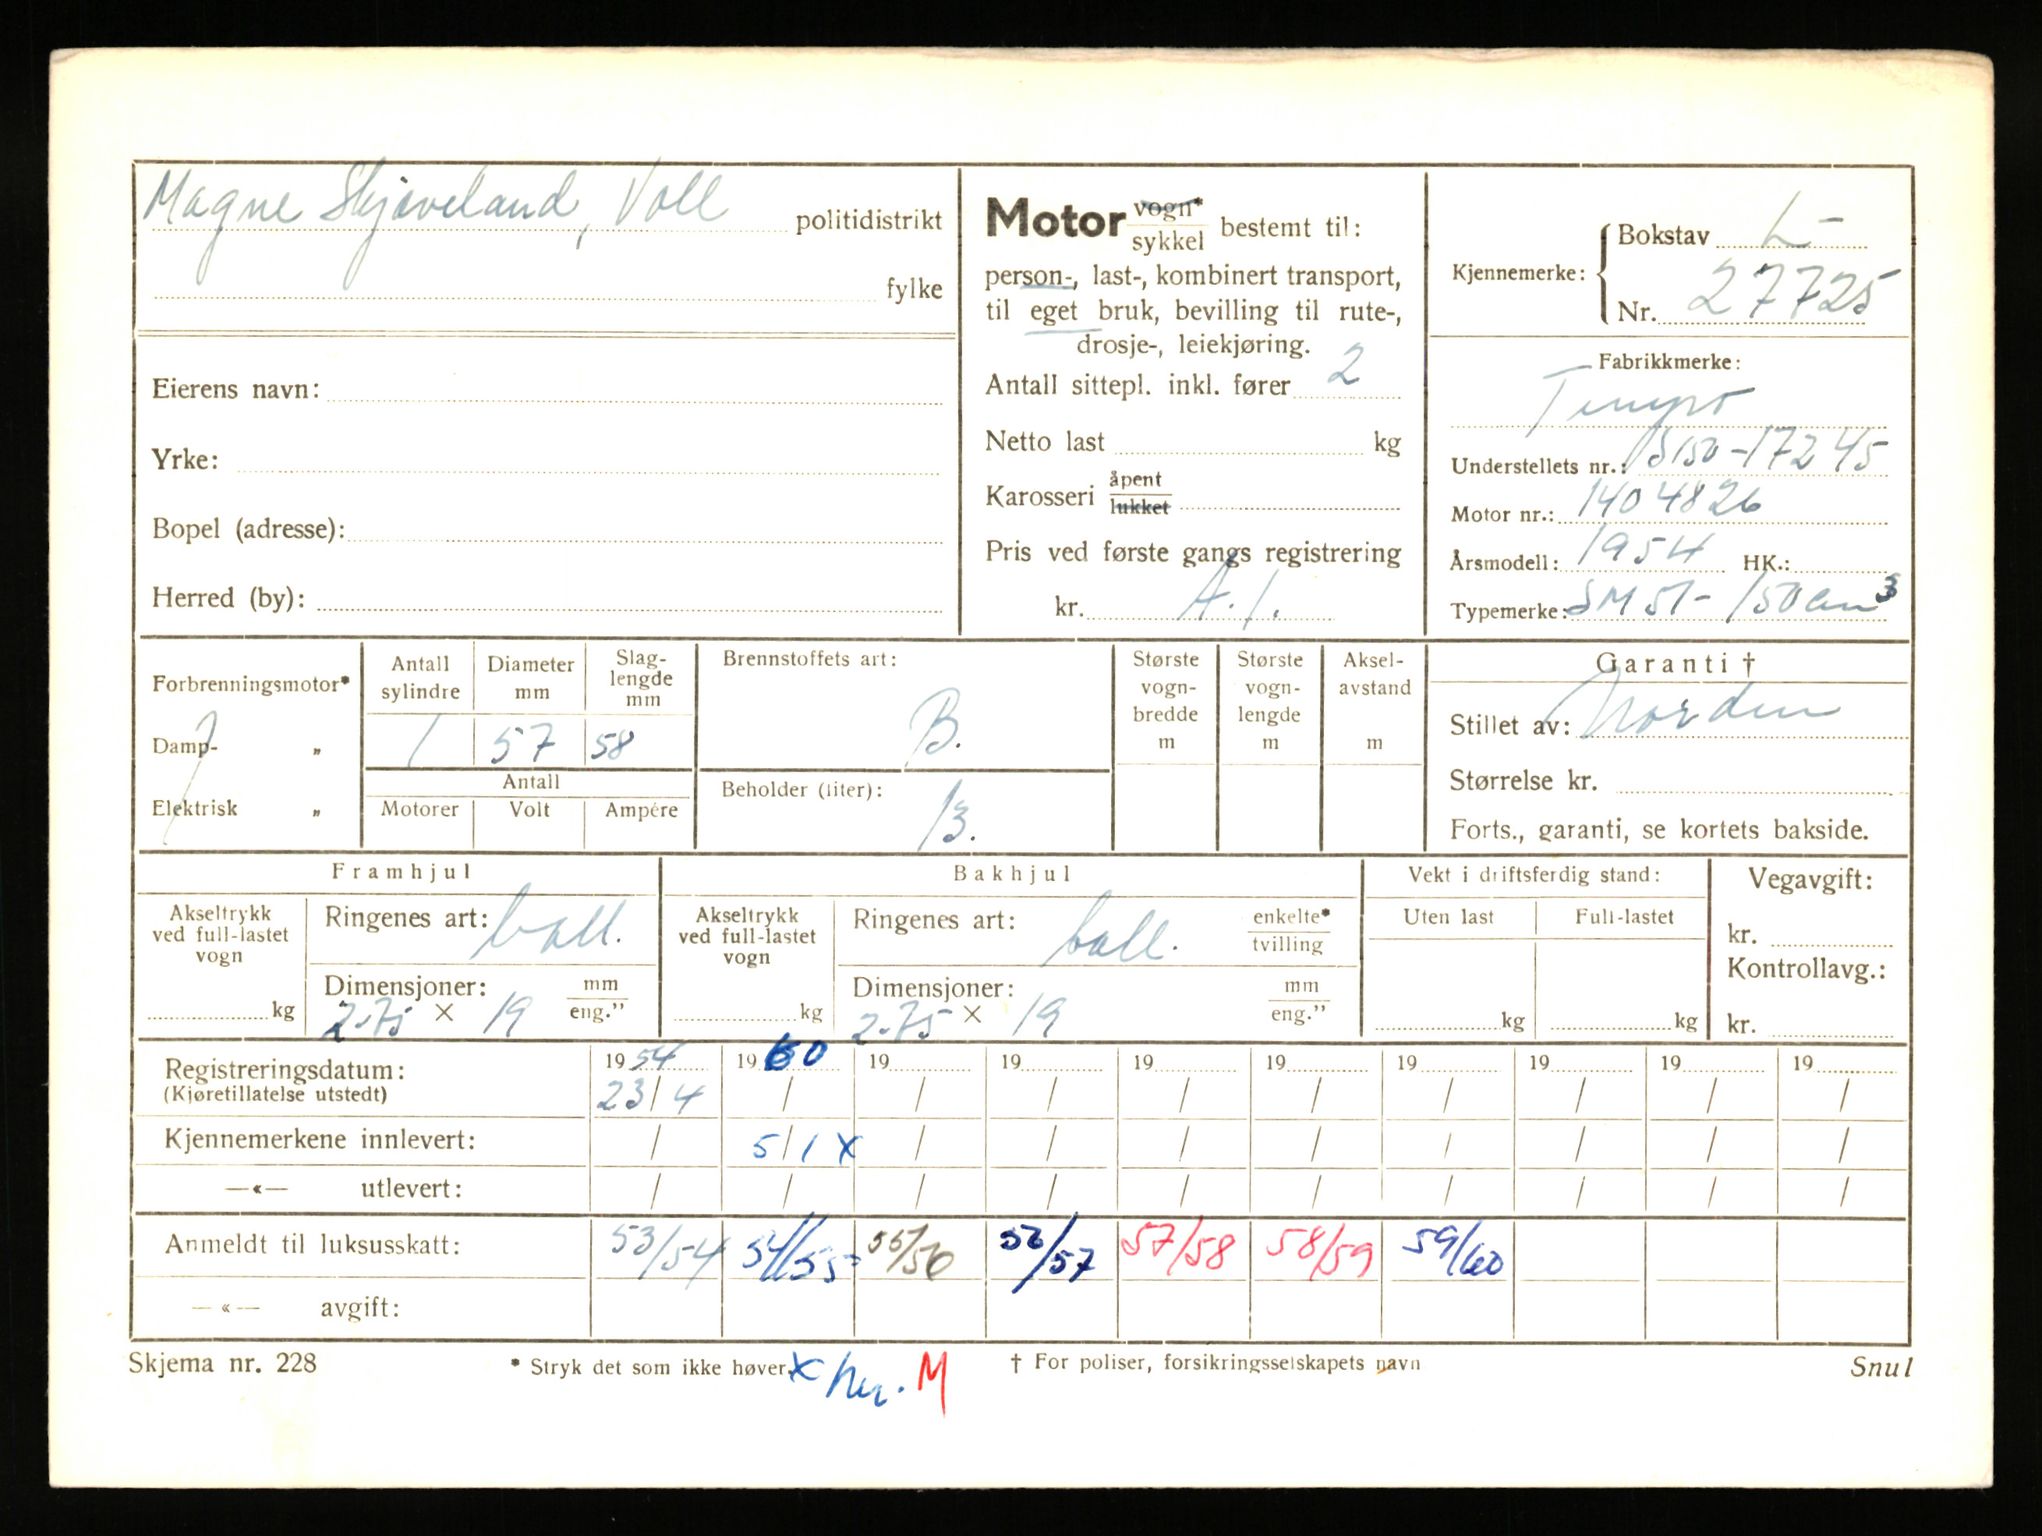 Magne Skjæveland, Voll politidistrikt
fylke
Eierens navn:
Yrke:
Bopel (adresse):
Herred (by):
Motor vogn*
sykkel bestemt til:
person-, last-, kombinert transport,
til eget bruk, bevilling til rute-,
drosje-, leiekjøring.
Antall sittepl. inkl. fører 2
Netto last kg
Karosseri åpent
lukket
Pris ved første gangs registrering
kr. A.1.
Kjennemerke: Bokstav L-
Nr. 27725
Fabrikkmerke:
Tempo
Understellets nr.: S150-17245
Motor nr.: 1404826
Årsmodell: 1954 HK.:
Typemerke: SM51- 150 cm³
Forbrenningsmotor*
Damp- „
Elektrisk „
Antall sylindre
Diameter mm
Slag-lengde mm
1 57 58
Antall
Motorer Volt Ampére
Brennstoffets art:
B.
Beholder (liter):
13.
Største vogn-bredde m
Største vogn-lengde m
Aksel-avstand m
Garanti †
Stillet av: Norden
Størrelse kr.
Forts., garanti, se kortets bakside.
Framhjul
Akseltrykk ved full-lastet vogn
kg
Ringenes art: ball.
Dimensjoner: mm
2.75 × 19 eng.”
Bakhjul
Akseltrykk ved full-lastet vogn
kg
Ringenes art: ball. enkelte*
tvilling
Dimensjoner: mm
2.75 × 19 eng.”
Vekt i driftsferdig stand:
Uten last Full-lastet
kg kg
Vegavgift:
kr.
Kontrollavg.:
kr.
Registreringsdatum: 1954 1960 19 19 19 19 19 19 19 19
(Kjøretillatelse utstedt) 23/4 / / / / / / / / /
Kjennemerkene innlevert: / 5/1 x / / / / / / / /
—«— utlevert: / / / / / / / / / /
Anmeldt til luksusskatt: 53/54 54/55 55/56 56/57 57/58 58/59 59/60
—«— avgift:
Skjema nr. 228 * Stryk det som ikke høver. x her. M † For poliser, forsikringsselskapets navn Snul